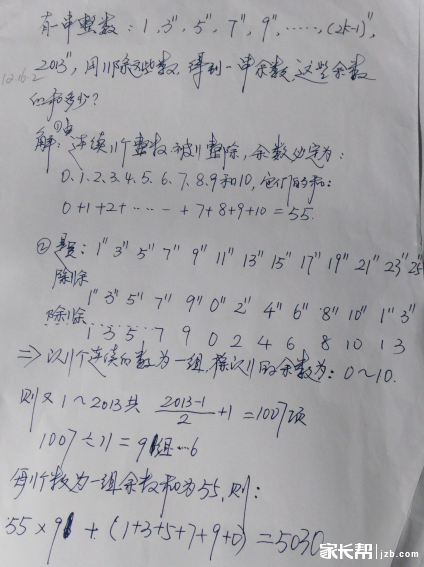 有一串整数：1, 3¹¹, 5¹¹, 7¹¹, 9¹¹, ……, (2k-1)¹¹,
2013¹¹, 用11除这些数, 得到一串余数, 这些余数
12.6.2
的和多少？
解：① 连续11个整数被11整除, 余数必定为：
0.1.2.3.4.5.6.7.8.9和10, 它们的和：
0+1+2+……+7+8+9+10=55.
② 1¹¹ 3¹¹ 5¹¹ 7¹¹ 9¹¹ 11¹¹ 13¹¹ 15¹¹ 17¹¹ 19¹¹ 21¹¹ 23¹¹ 25¹¹
除以11余 1¹¹ 3¹¹ 5¹¹ 7¹¹ 9¹¹ 0¹¹ 2¹¹ 4¹¹ 6¹¹ 8¹¹ 10¹¹ 1¹¹ 3¹¹
除以11余 1 3 5 7 9 0 2 4 6 8 10 1 3
⇒ 以11个连续的数为一组, 除以11的余数为：0~10.
则又1~2013共 (2013-1)/2 +1 = 1007项
1007÷11=91组…6
每11个数为一组余数和为55, 则：
55×91 + (1+3+5+7+9+0) = 5030
家长帮 jzb.com